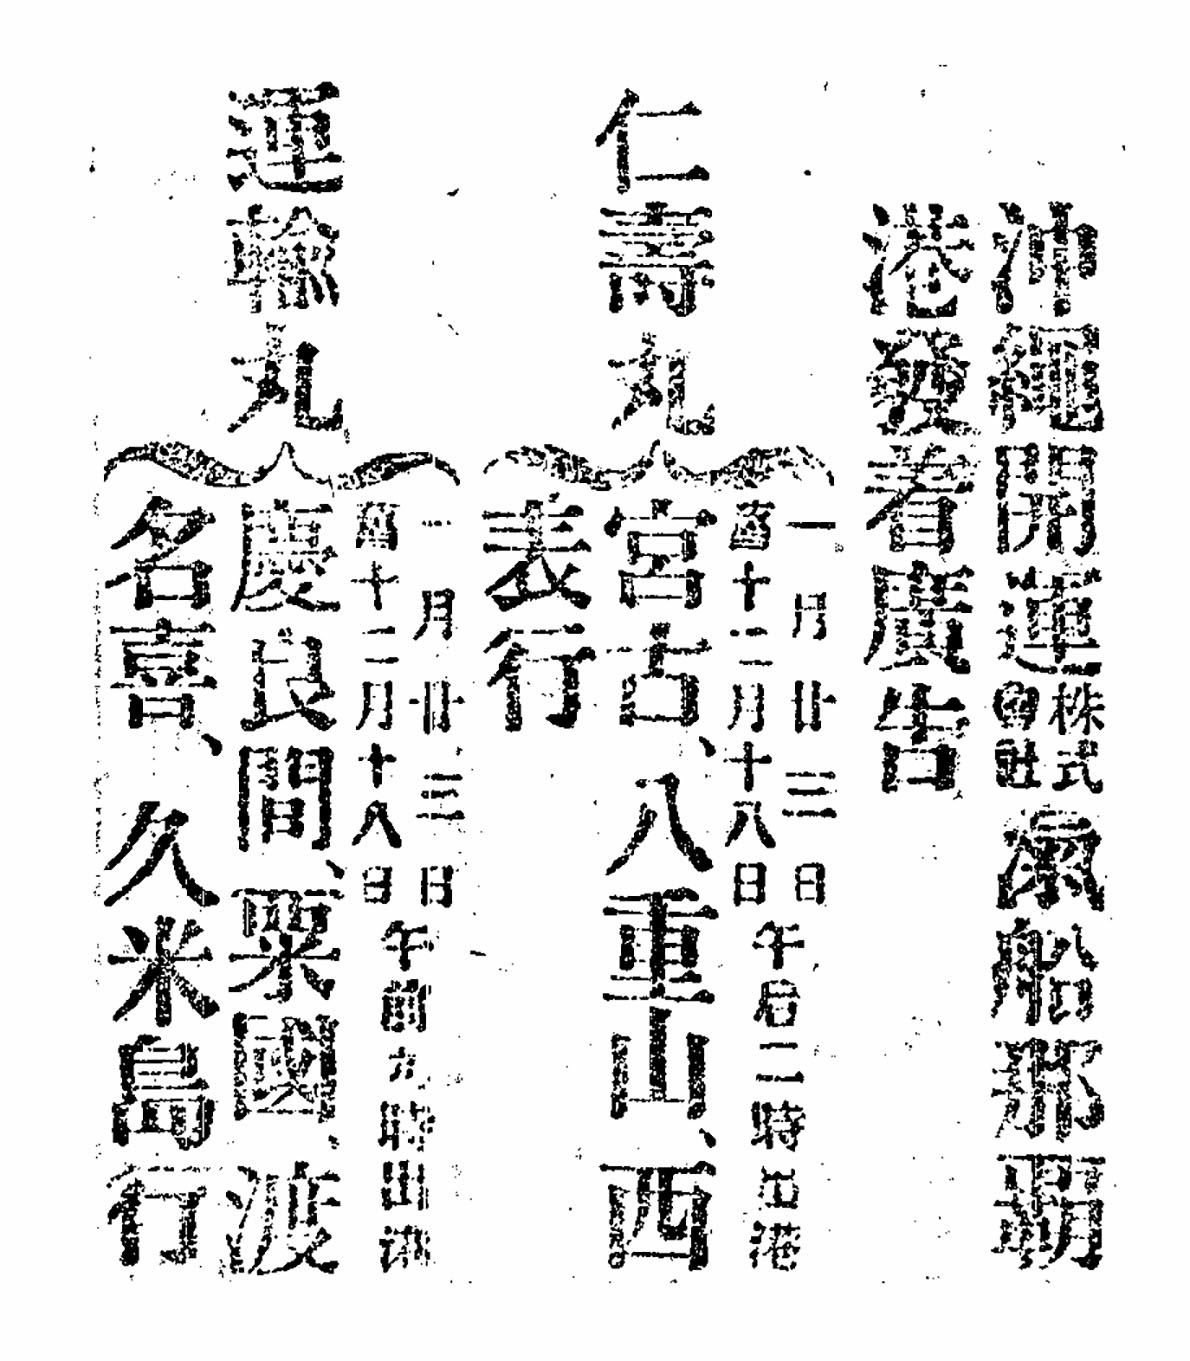 沖縄開運株式會社滊船於那覇
港發着廣告
仁壽丸
一月廿三日
舊十二月十八日
午后二時出港
宮古、八重山、西
表行
運輸丸
一月廿三日
舊十二月十八日
午前九時出港
慶良間、粟國、渡
名喜、久米島行